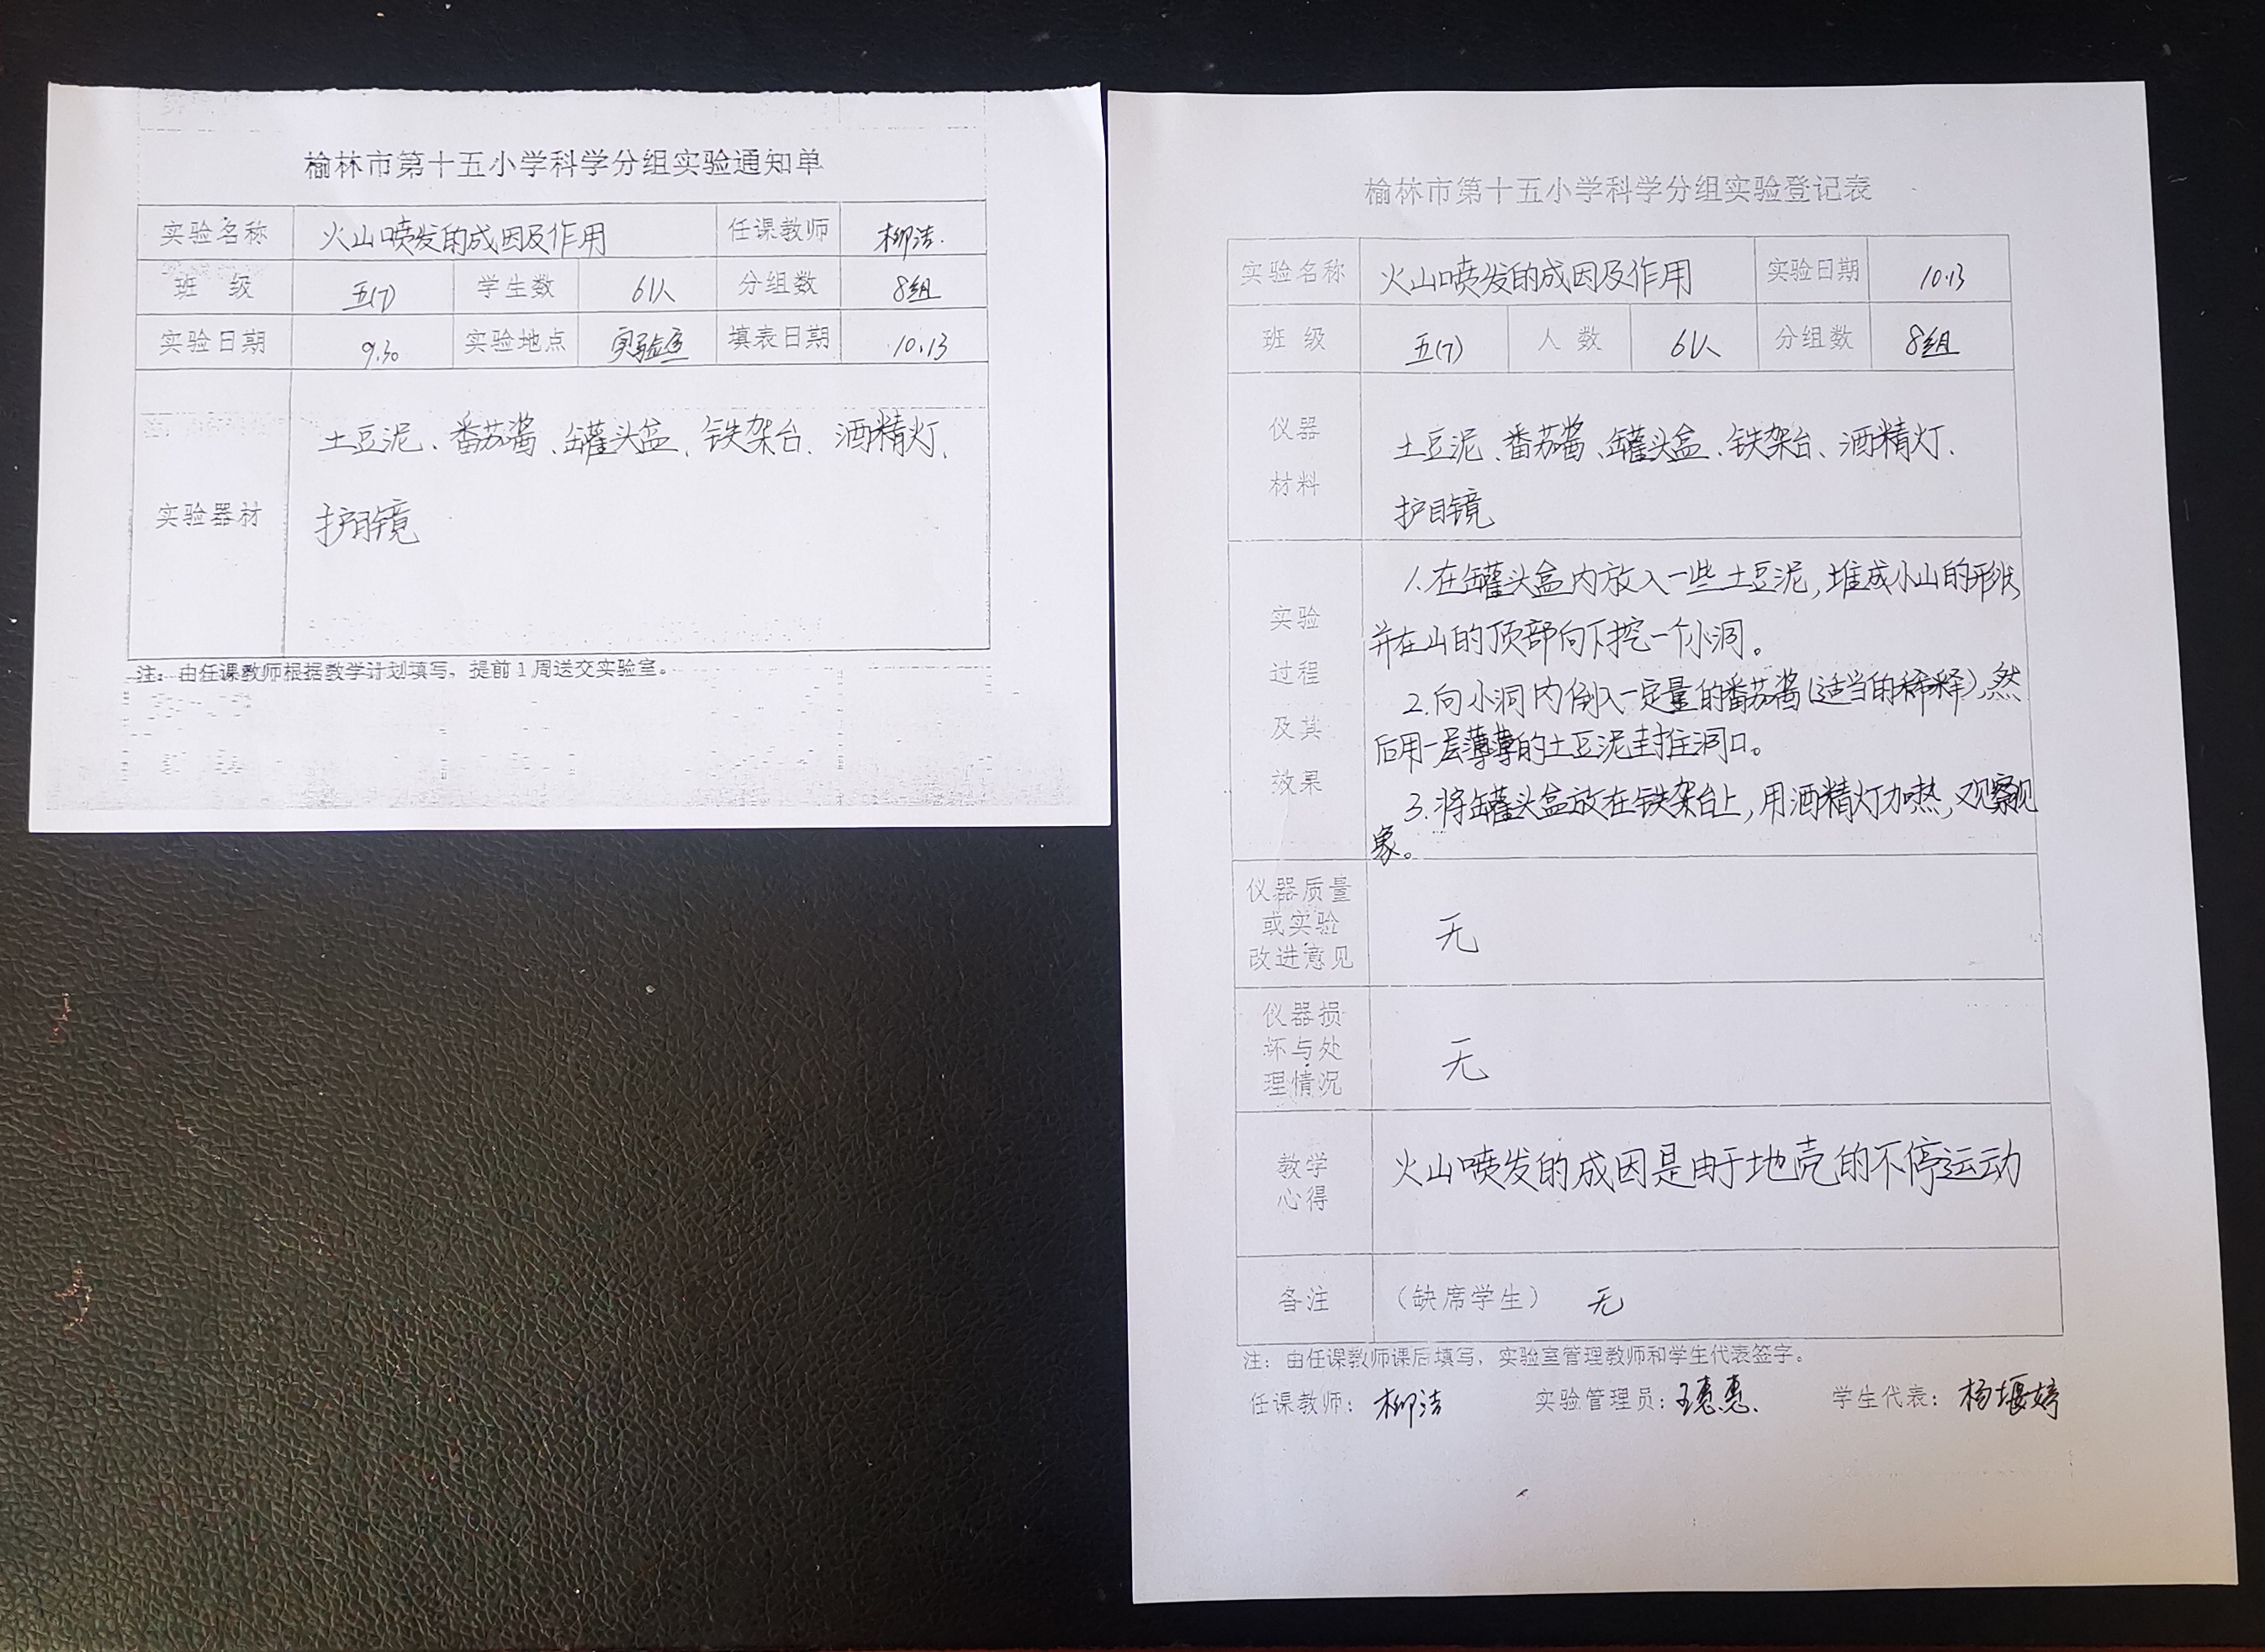 榆林市第十五小学科学分组实验通知单
实验名称 火山喷发的成因及作用 任课教师 柳洁.
班 级 五(7) 学生数 61人 分组数 8组
实验日期 9.30 实验地点 实验室 填表日期 10.13
土豆泥、番茄酱、罐头盒、铁架台、酒精灯、
实验器材 护目镜
注：由任课教师根据教学计划填写，提前1周送交实验室。
榆林市第十五小学科学分组实验登记表
实验名称 火山喷发的成因及作用 实验日期 10.13
班 级 五(7) 人 数 61人 分组数 8组
仪器 土豆泥、番茄酱、罐头盒、铁架台、酒精灯、
材料 护目镜
1.在罐头盒内放入一些土豆泥,堆成小山的形状
实验 并在山的顶部向下挖一个小洞。
过程 2.向小洞内倒入一定量的番茄酱(适当的稀释),然
及其 后用一层薄薄的土豆泥封住洞口。
效果 3.将罐头盒放在铁架台上,用酒精灯加热,观察现
象。
仪器质量
或实验 无
改进意见
仪器损
坏与处 无
理情况
教学 火山喷发的成因是由于地壳的不停运动
心得
备注 （缺席学生） 无
注：由任课教师课后填写，实验室管理教师和学生代表签字。
任课教师：柳洁 实验管理员：王惠惠. 学生代表：杨堰婷